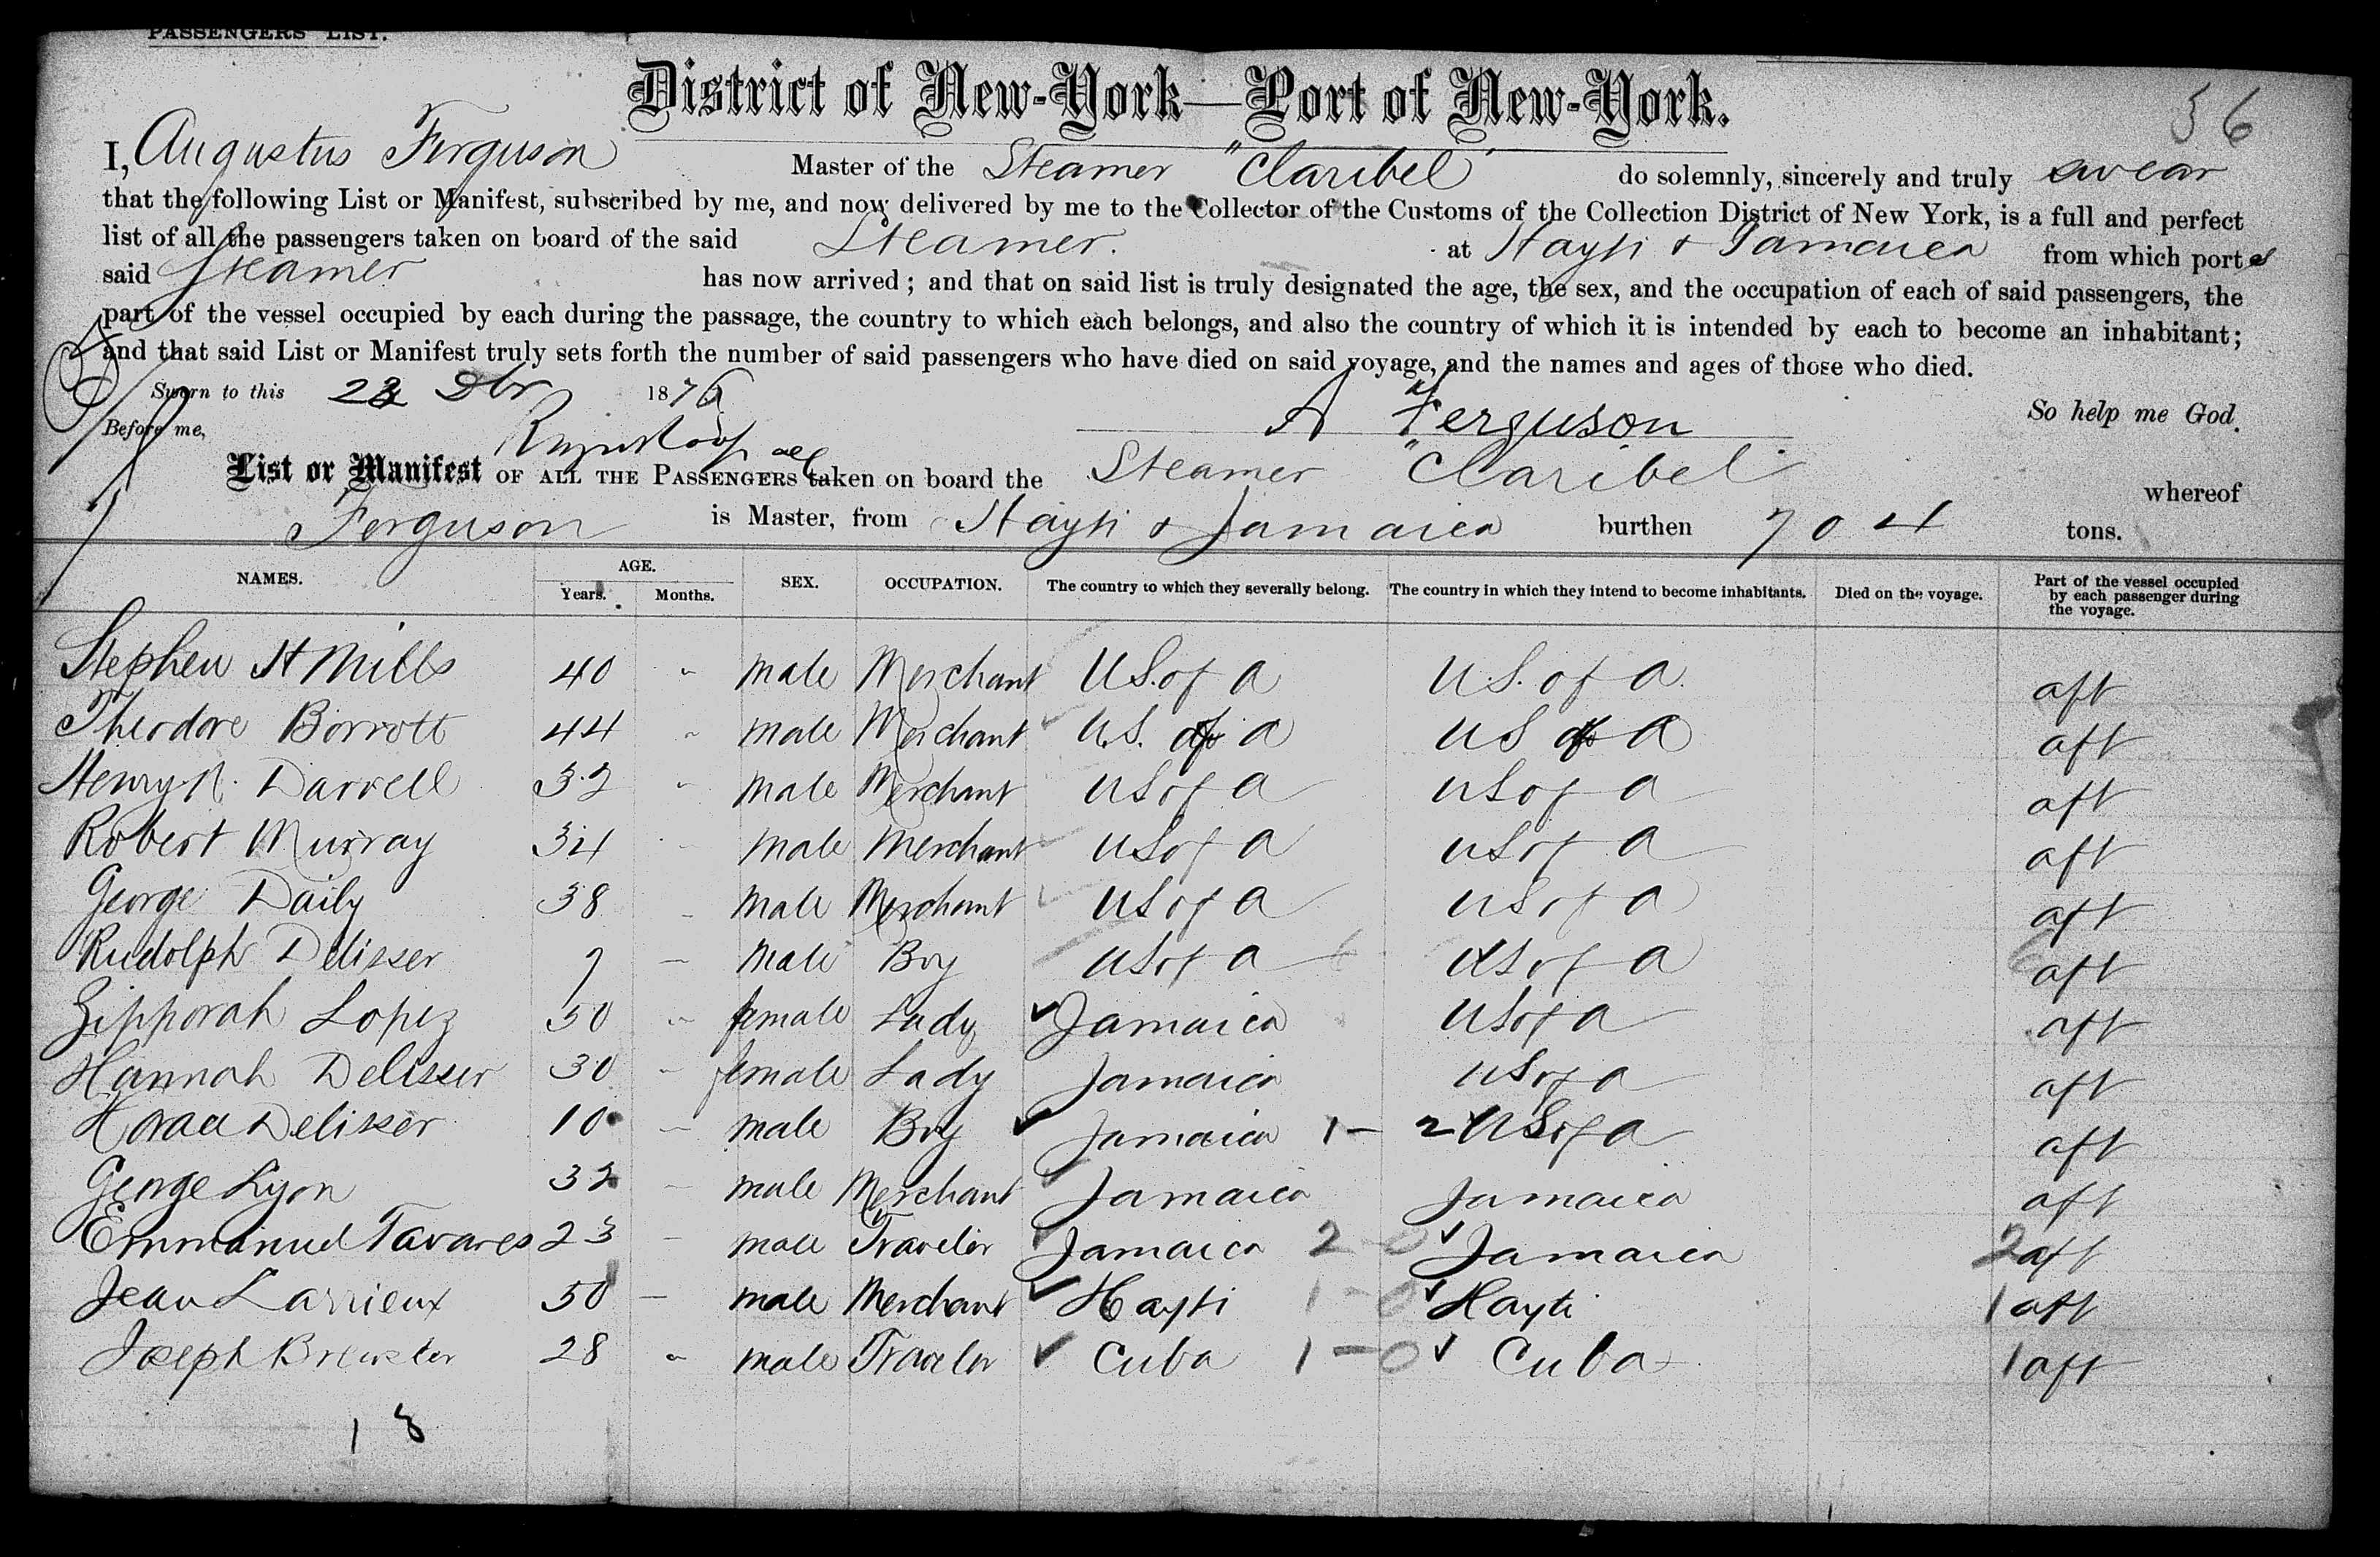 PASSENGERS LIST.
District of New-York—Port of New-York.
56
I, Augustus Ferguson Master of the Steamer "Claribel" do solemnly, sincerely and truly swear
that the following List or Manifest, subscribed by me, and now delivered by me to the Collector of the Customs of the Collection District of New York, is a full and perfect
list of all the passengers taken on board of the said Steamer. at Hayti & Jamaica from which ports
said Steamer has now arrived; and that on said list is truly designated the age, the sex, and the occupation of each of said passengers, the
part of the vessel occupied by each during the passage, the country to which each belongs, and also the country of which it is intended by each to become an inhabitant;
and that said List or Manifest truly sets forth the number of said passengers who have died on said voyage, and the names and ages of those who died.
Sworn to this 23 Dbr 1876 A Ferguson So help me God.
Before me,
List or Manifest OF ALL THE PASSENGERS taken on board the Steamer "Claribel" whereof
Ferguson is Master, from Hayti & Jamaica burthen 704 tons.
NAMES. AGE. Years. Months. SEX. OCCUPATION. The country to which they severally belong. The country in which they intend to become inhabitants. Died on the voyage. Part of the vessel occupied by each passenger during the voyage.
Stephen H Mills 40 " male Merchant U.S. of A U.S. of A. aft
Theodore Borrott 44 " male Merchant U.S. of A US of A aft
Henry N. Darrell 32 " male Merchant US of A US of A aft
Robert Murray 34 " male Merchant US of A US of A aft
George Daily 38 " male Merchant US of A US of A aft
Rudolph Delisser 7 " male Boy US of A US of A aft
Zipporah Lopez 50 " female Lady Jamaica US of A aft
Hannah Delisser 30 " female Lady Jamaica US of A aft
Horace Delisser 10 " male Boy Jamaica 1 - 2 US of A aft
George Lyon 32 " male Merchant Jamaica Jamaica aft
Emmanuel Tavares 23 " male Traveler Jamaica 2 - 0 Jamaica 2 aft
Jean Larrieux 50 " male Merchant Hayti 1 - 0 Hayti 1 aft
Joseph Brewster 28 " male Traveler Cuba 1 - 0 Cuba 1 aft
13